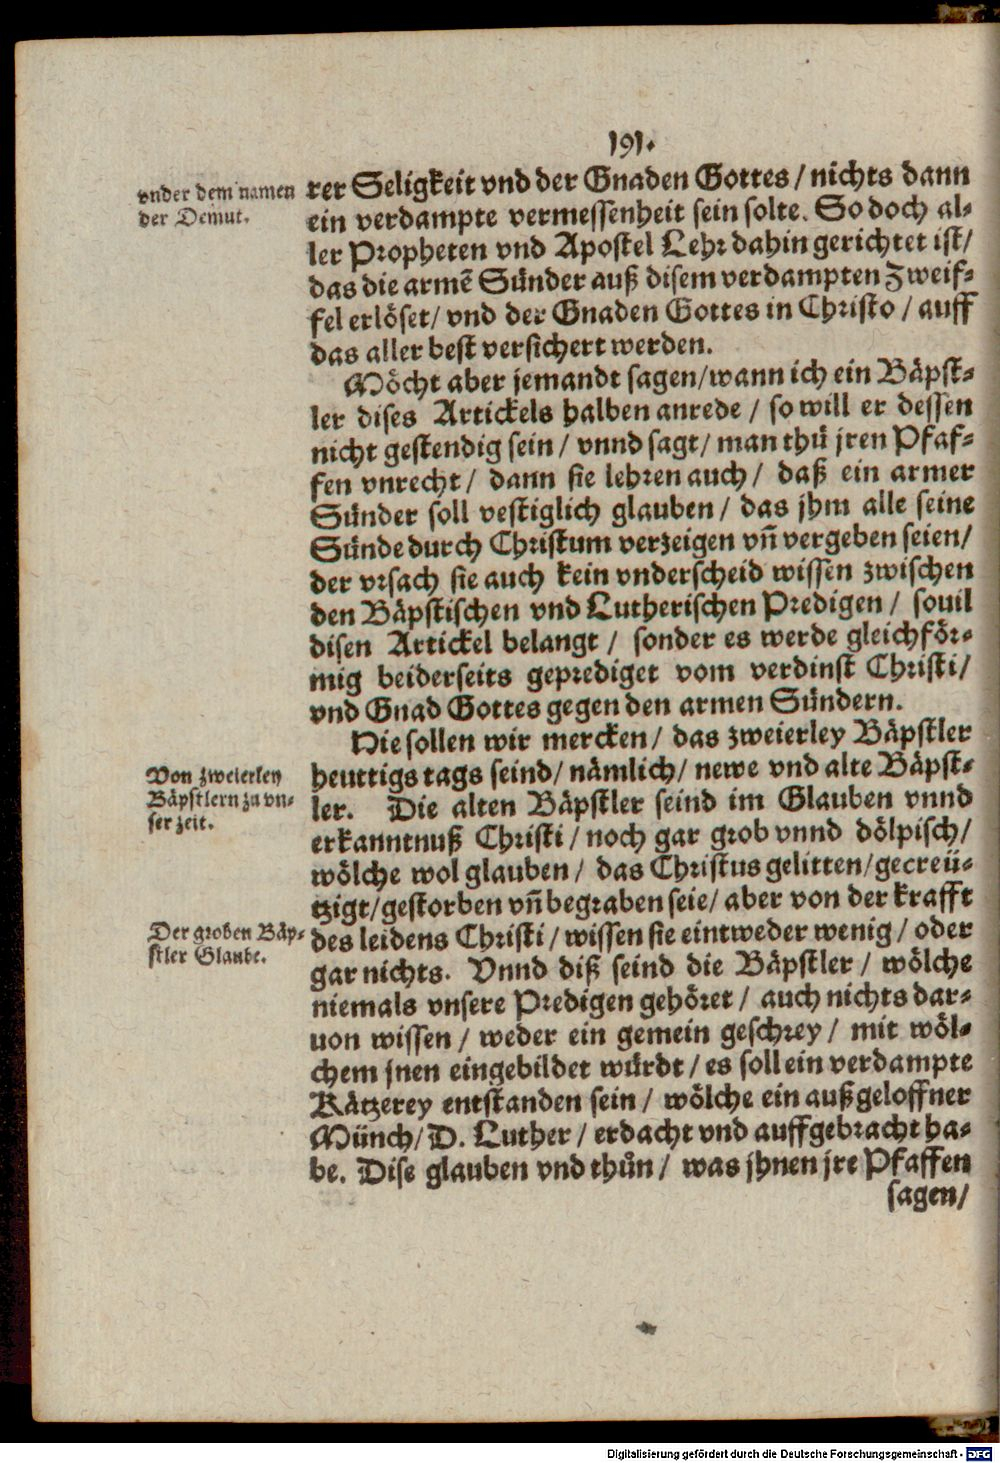 191.
vnder dem namen
der Demut.
rer Seligkeit vnd der Gnaden Gottes / nichts dann
ein verdampte vermessenheit sein solte. So doch al-
ler Propheten vnd Apostel Lehr dahin gerichtet ist/
das die armē Sünder auß disem verdampten Zweif-
fel erlöset/ vnd der Gnaden Gottes in Christo / auff
das aller best versichert werden.
Möcht aber jemandt sagen/wann ich ein Bäpst-
ler dises Artickels halben anrede / so will er dessen
nicht gestendig sein / vnnd sagt/ man thů jren Pfaf-
fen vnrecht / dann sie lehren auch / daß ein armer
Sünder soll vestiglich glauben / das jhm alle seine
Sünde durch Christum verzeigen vñ vergeben seien/
der vrsach sie auch kein vnderscheid wissen zwischen
den Bäpstischen vnd Lutherischen Predigen / souil
disen Artickel belangt / sonder es werde gleichför-
mig beiderseits geprediget vom verdinst Christi/
vnd Gnad Gottes gegen den armen Sündern.
Hie sollen wir mercken / das zweierley Bäpstler
Von zweierley
Bäpstlern zu vn-
ser zeit.
heuttigs tags seind/ nämlich/ newe vnd alte Bäpst-
ler. Die alten Bäpstler seind im Glauben vnnd
erkanntnuß Christi / noch gar grob vnnd dölpisch/
wölche wol glauben / das Christus gelitten/gecreü-
tzigt/gestorben vñ begraben seie/ aber von der krafft
Der groben Bäp-
stler Glaube.
des leidens Christi / wissen sie eintweder wenig / oder
gar nichts. Vnnd diß seind die Bäpstler / wölche
niemals vnsere Predigen gehöret / auch nichts dar-
uon wissen / weder ein gemein geschrey / mit wöl-
chem jnen eingebildet würdt / es soll ein verdampte
Kätzerey entstanden sein / wölche ein außgeloffner
Münch/ D. Luther / erdacht vnd auffgebracht ha-
be. Dise glauben vnd thůn / was jhnen jre Pfaffen
sagen/
Digitalisierung gefördert durch die Deutsche Forschungsgemeinschaft - DFG